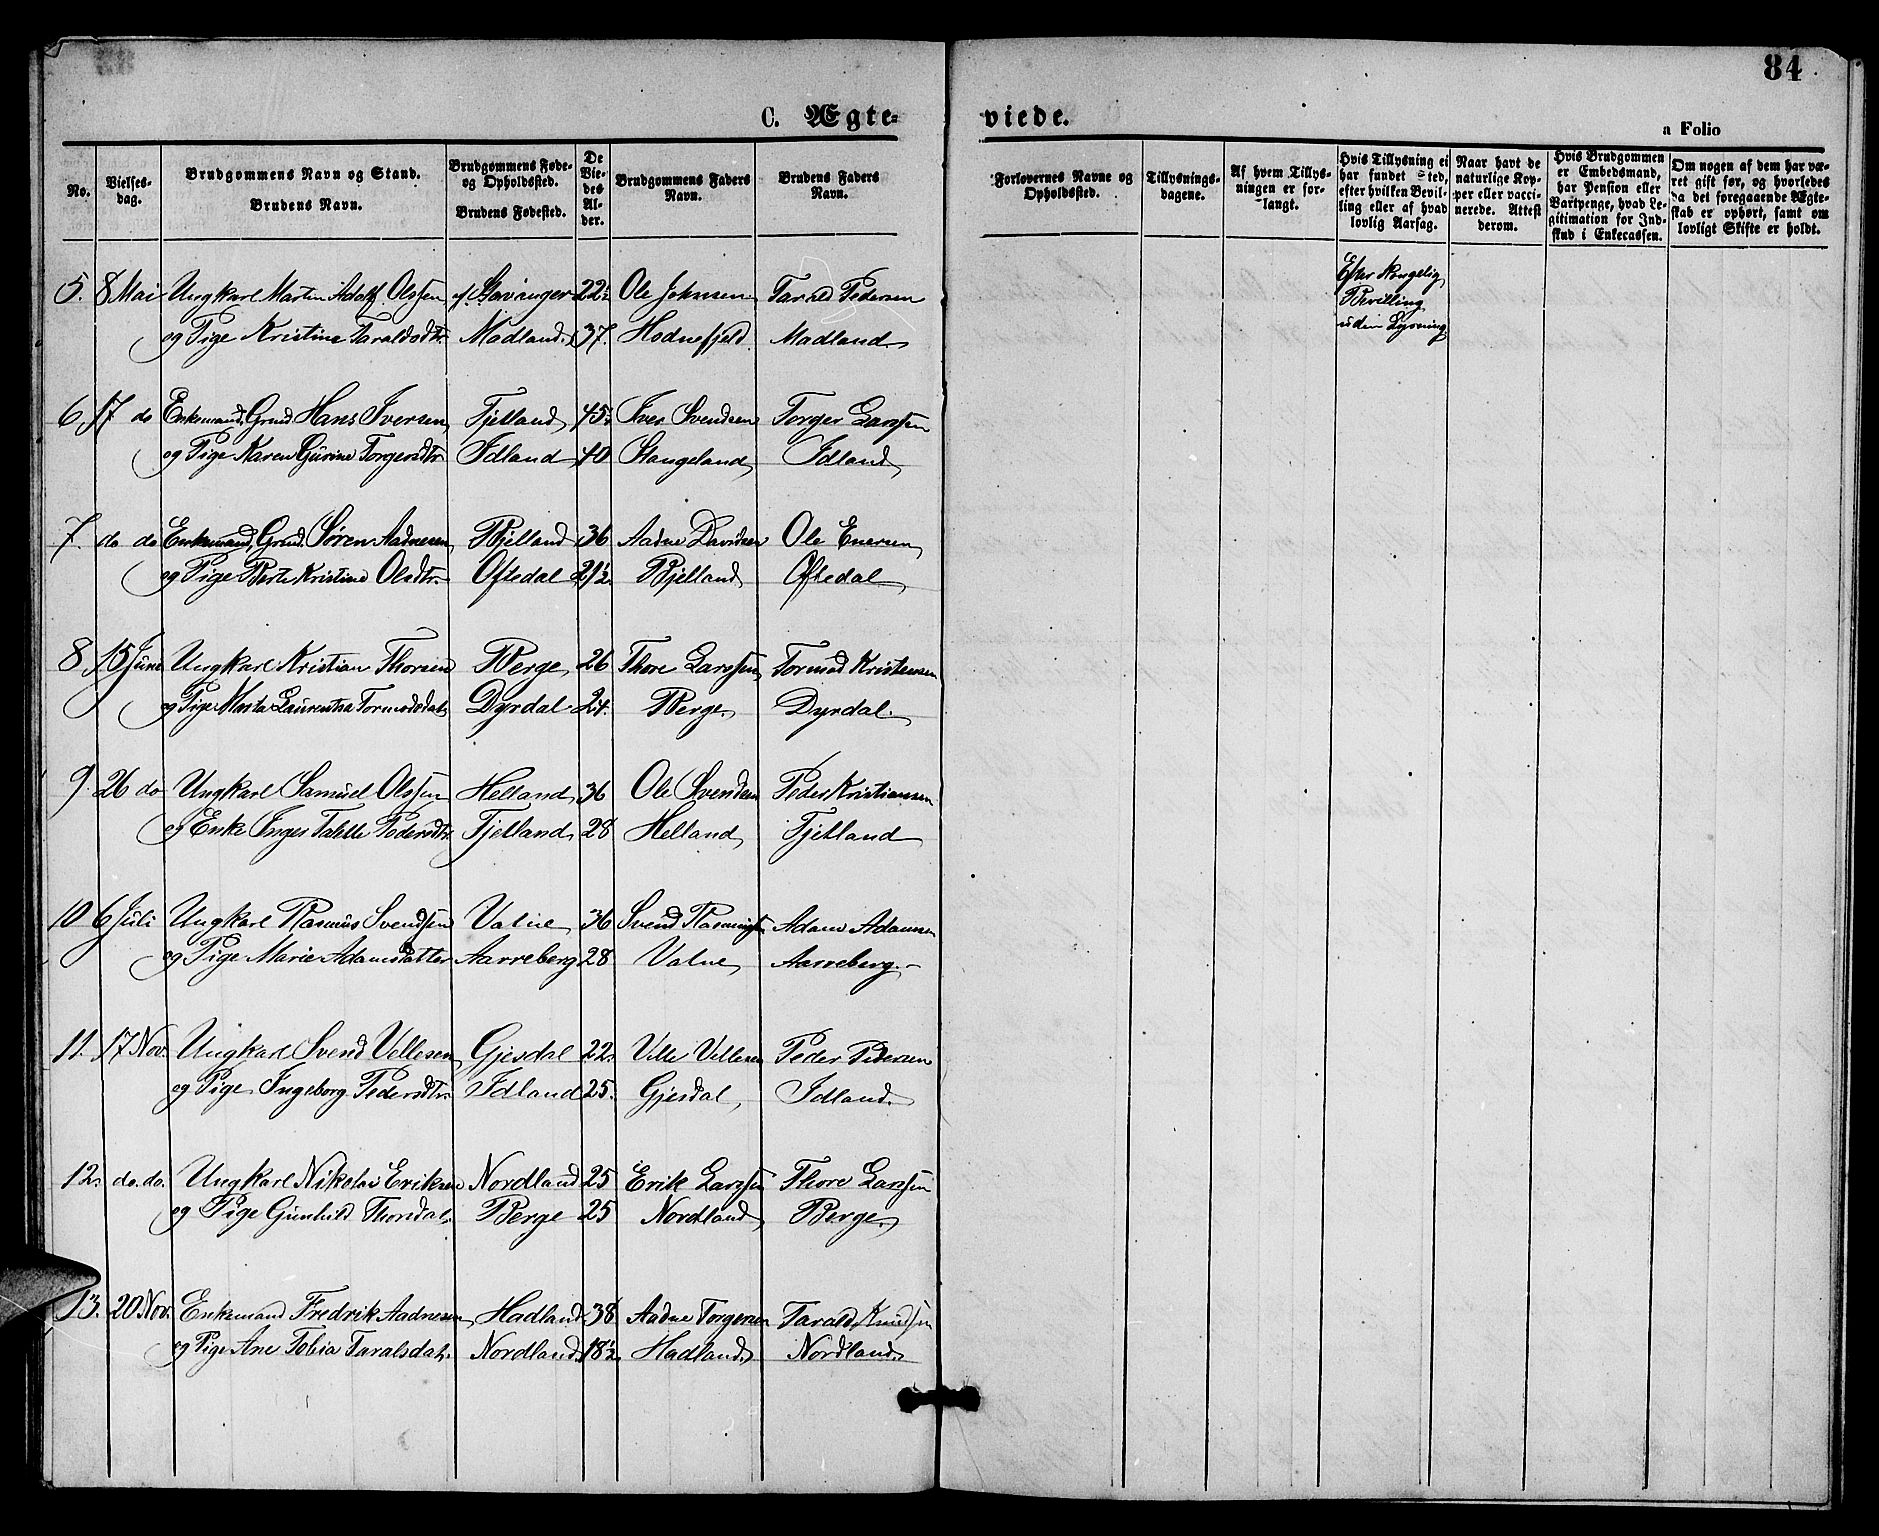 84
C. Ægte- viede.
a Folio
No.
Vielses-dag.
Brudgommens Navn og Stand.
Brudens Navn.
Brudgommens Føde- og Opholdssted.
Brudens Fødested.
De Viedes Alder.
Brudgommens Faders Navn.
Brudens Faders Navn.
Forlovernes Navne og Opholdssted.
Tillysnings-dagene.
Af hvem Tillysningen er forlangt.
Hvis Tillysning ei har fundet Sted, efter hvilken Bevilling eller af hvad lovlig Aarsag.
Naar havt de naturlige Kopper eller vaccinerede. Attest derom.
Hvis Brudgommen er Embedsmand, har Pension eller Vartpenge, hvad Legitimation for Indskud i Enkecassen.
Om nogen af dem har været gift før, og hvorledes da det foregaaende Ægteskab er ophørt, samt om lovligt Skifte er holdt.
5. 8 Mai Ungkarl Martin Adolf Olssen f. Stavanger 22½ Ole Johnsen Tarald Pedersen Efter Kongelig Bevilling
og Pige Kristine Taraldsdtr. Madland. 37. Hodnefjeld. Madland. uden Lysning
6. 17 do Enkemand, Grmd. Hans Iversen Tjelland 45½ Iver Svendsen Torger Larssen
og Pige Karen Gurine Torgersdtr. Idland 40 Stangeland Idland
7. do do Enkemand, Grmd. Søren Aadnesen Bjelland 36 Aadne Davidsen Ole Enersen
og Pige Berte Kristine Olsdtr. Oftedal 21½ Bjelland Oftedal
8. 15 Juni Ungkarl Kristian Thorsen Berge 26 Thore Larssen Tormod Kristensen
og Pige Marta Laurentsa Tormodsdat. Dyrdal 24. Berge. Dyrdal.
9. 26 do Ungkarl Samuel Olssen Helland 36 Ole Svendsen Peder Kristiansen
og Enke Inger Talette Pedersdtr. Tjelland 28 Helland Tjelland
10 6 Juli Ungkarl Rasmus Svendsen Value 36 Svend Rasmussen Adam Adamsen
og Pige Marie Adamsdatter Aarreberg 28 Value Aarreberg.
11. 17 Nov. Ungkarl Svend Vellesen Gjesdal 22. Velle Vellesen Peder Pedersen
og Pige Ingeborg Pedersdtr. Idland 25. Gjesdal Idland.
12. do. do. Ungkarl Nikolai Eriksen Nordland 25 Erik Larssen Thore Larssen
og Pige Gunhild Thorsdat. Berge 25 Nordland Berge.
13. 20 Nov. Enkemand Fredrik Aadnesen Hadland. 38 Aadne Torgersen Tarald Knudsen
og Pige Ane Tobia Taralsdat. Nordland. 18½ Hadland. Nordland.